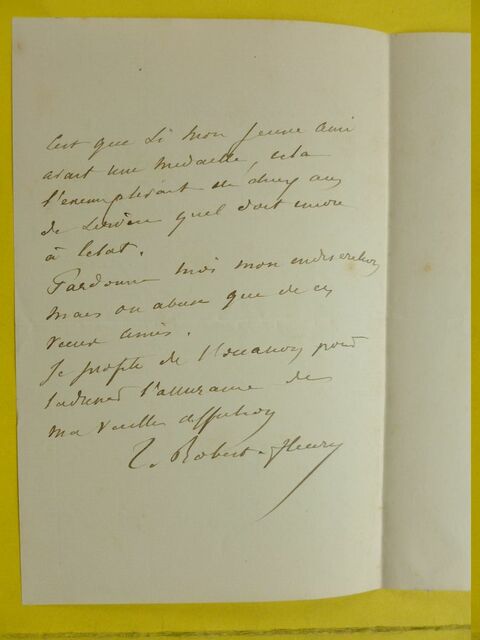 C'est que si mon jeune ami
avait une medaille, cela
l'exempterait de cinq ans
de service quil doit encore
à letat.
Pardonne moi mon indiscretion
mais on abuse que de ces
vieux amis.
Je profite de l'occasion pour
t'adresser l'assurance de
ma vieille affection
Robert-Fleury